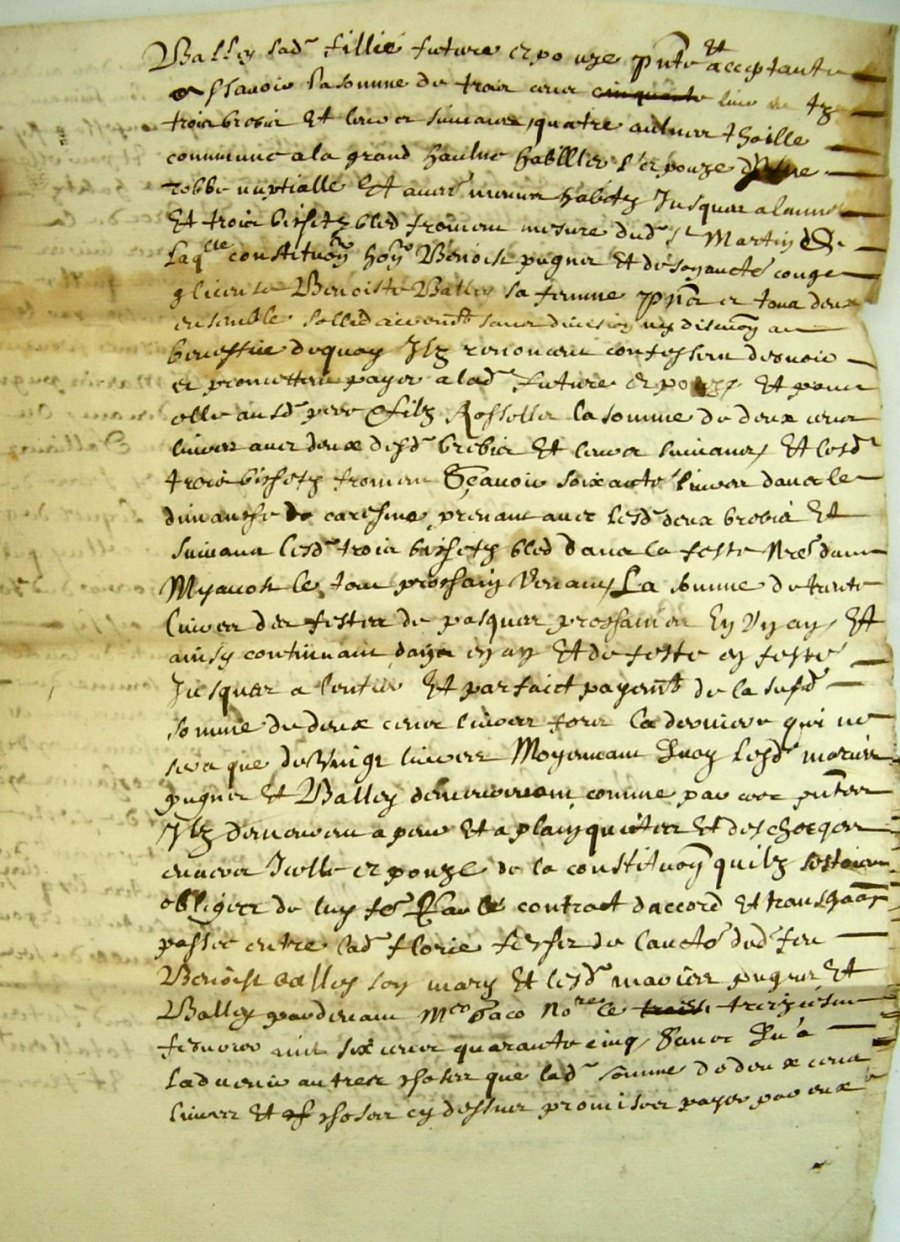 Balley lad. fillie future espouze pnte et acceptante
a scavoir la somme de trois cens cinquante livres tz
trois brebis et leurs suivans, quatre aulnes thoille
commune a la grand haulne habiller l'espouze d'une
robbe nuptialle et aues menus habitz jusques a
et troix bichetz bled froment mesure dud. St Martin
Laqlle constituon hoe Benoist pugnet et de son aucte conge
licence Benoiste Balley sa femme pnte et tous deux
ensemble sollidairemt sans division ny discuon au
beneffice de quoy Ilz renoncent confessent debvoir
et promettent payer a lad. future espouze, et pour
elle ausd. pere et filz Rossellet la somme de deux cens
livres avec deux desd. brebis et leurs suivans, et lesd.
trois bichetz froment Scavoir soixante livres dans le
dimanche de caresme prenant avec lesd. deux brebis et
suivans lesd. trois bichetz bled dans la feste Nre dame
Myaoust le tout prochain venant, La somme de trente
livres des festes de pasques prochaines en un an, et
ainsy continuant dan en an et de feste en feste
Jusques a lentier et parfaict payemt de la susd.
somme de deux cens livres fors la derniere qui ne
sera que de vingt livres Moyennant quoy lesd. maries
pugnet et Balley demeureront, comme par ces pntes
Ilz demeurent a pur et a plain quittes et descharges
envers Icelle espouze de la constituon quilz sestoient
obliges de luy fe. Par le contract daccord et transaon
passee entre lad. florie de laucte dud. feu
Benoist balley son mary et lesd. maries pugnet et
Balley pardevant Me Nore le treiziesme
febvrier mil six cens quarante cinq, Sans qu'a
ladvenir autres choses que lad. somme de deux cens
livres et choses cy dessus promises payer par eux